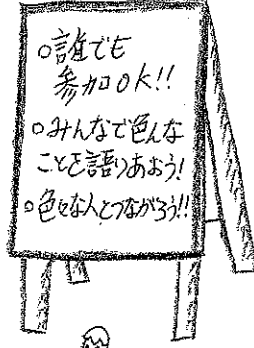 ○誰でも
参加OK!!
○みんなで色んな
ことを語りあおう!
○色々な人とつながろう!!